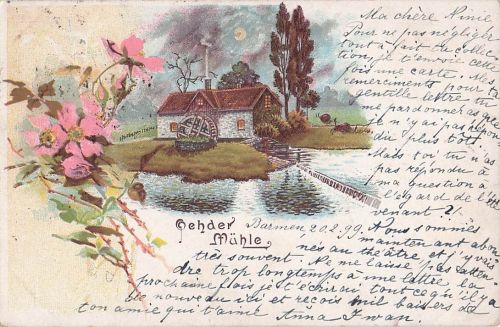 Ma chère Ninie
Pour ne pas négliger
tout à fait ta collec-
tion, je t'envoie cette
fois une carte. Mes re-
merciements pour ta
gentille lettre, tu
me pardonneras
je n'y ai pas répon-
die plus tôt.
Mais toi tu n'as
pas répondu à
ma question à
l'égard de l'
venant?!
Oehder
Mühle
Barmen, 20.2.99. Nous sommes
maintenant abon-
nés au théâtre et j'y vais
très souvent. Ne me laisse pas atten-
dre trop longtemps à une lettre la
prochaine fois je t'écrirai tout ce qu'il y a
de nouveau ici et reçois mil baisers de
ton amie qui t'aime Anna Iwan